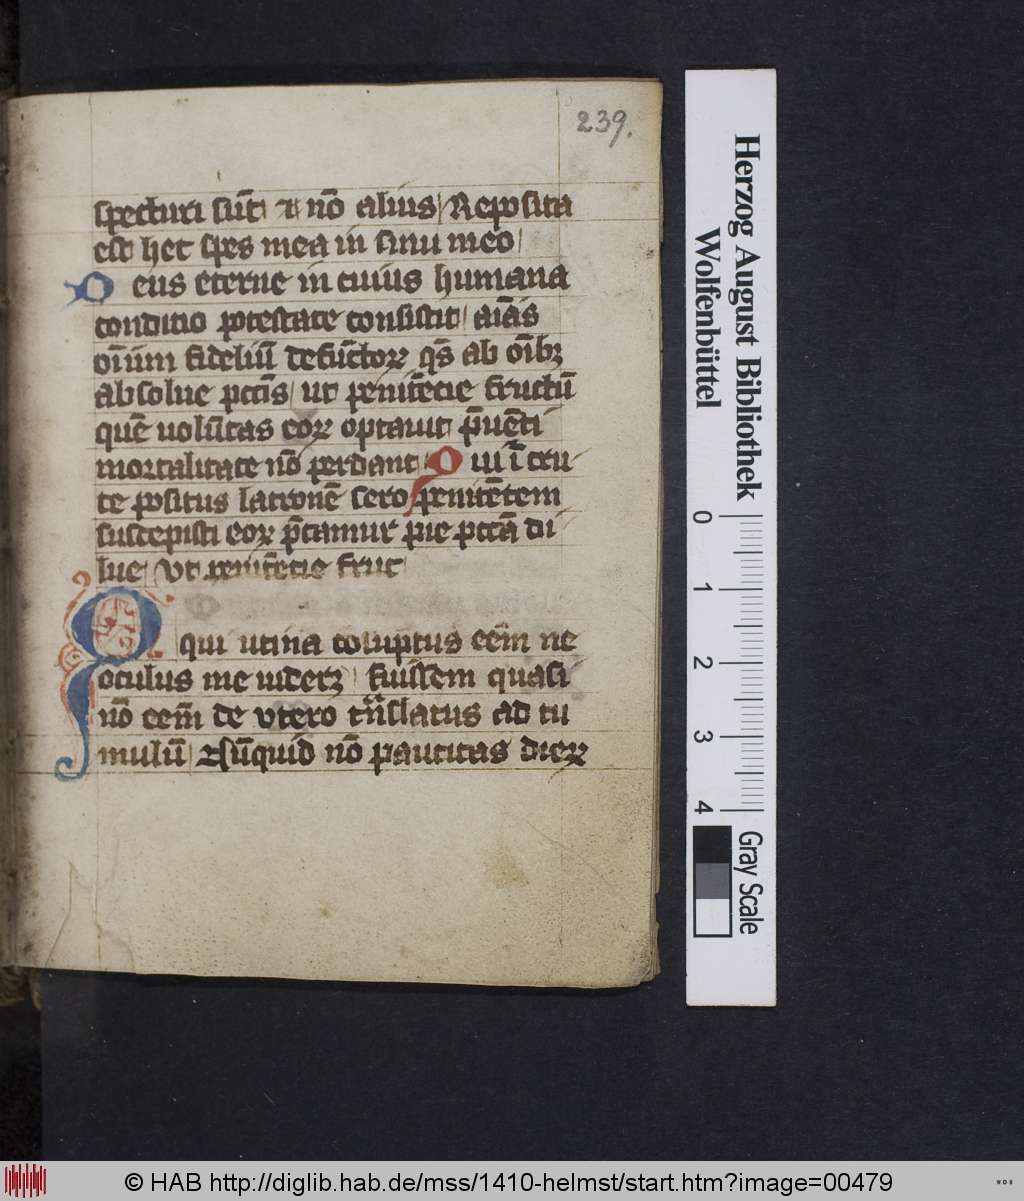 239.
specturi sūt ⁊ nō alius Reposita
est hec spes mea in sinu meo
Deus eterne in cuius humana
conditio potestate consistit aīas
oīum fideliū defūctoꝝ qs̄ ab oībꝫ
absolue pccīs ut penitēcie fructū
quē uolūtas eoꝝ optauit p̄uēti
mortalitate nō perdant Qui ī cru
ce positus latronē sero penitētem
suscepisti eoꝝ p̄camur pie pccā di
lue Vt penitēcie fruc
qui utina cōsūptus eēm ne
oculus me uideret fuissem quasi
nō eēm de vtero trāslatus ad tu
mulū Nūquid nō paucitas dieꝝ
Herzog August Bibliothek
Wolfenbüttel
0 1 2 3 4
Gray Scale
© HAB http://diglib.hab.de/mss/1410-helmst/start.htm?image=00479